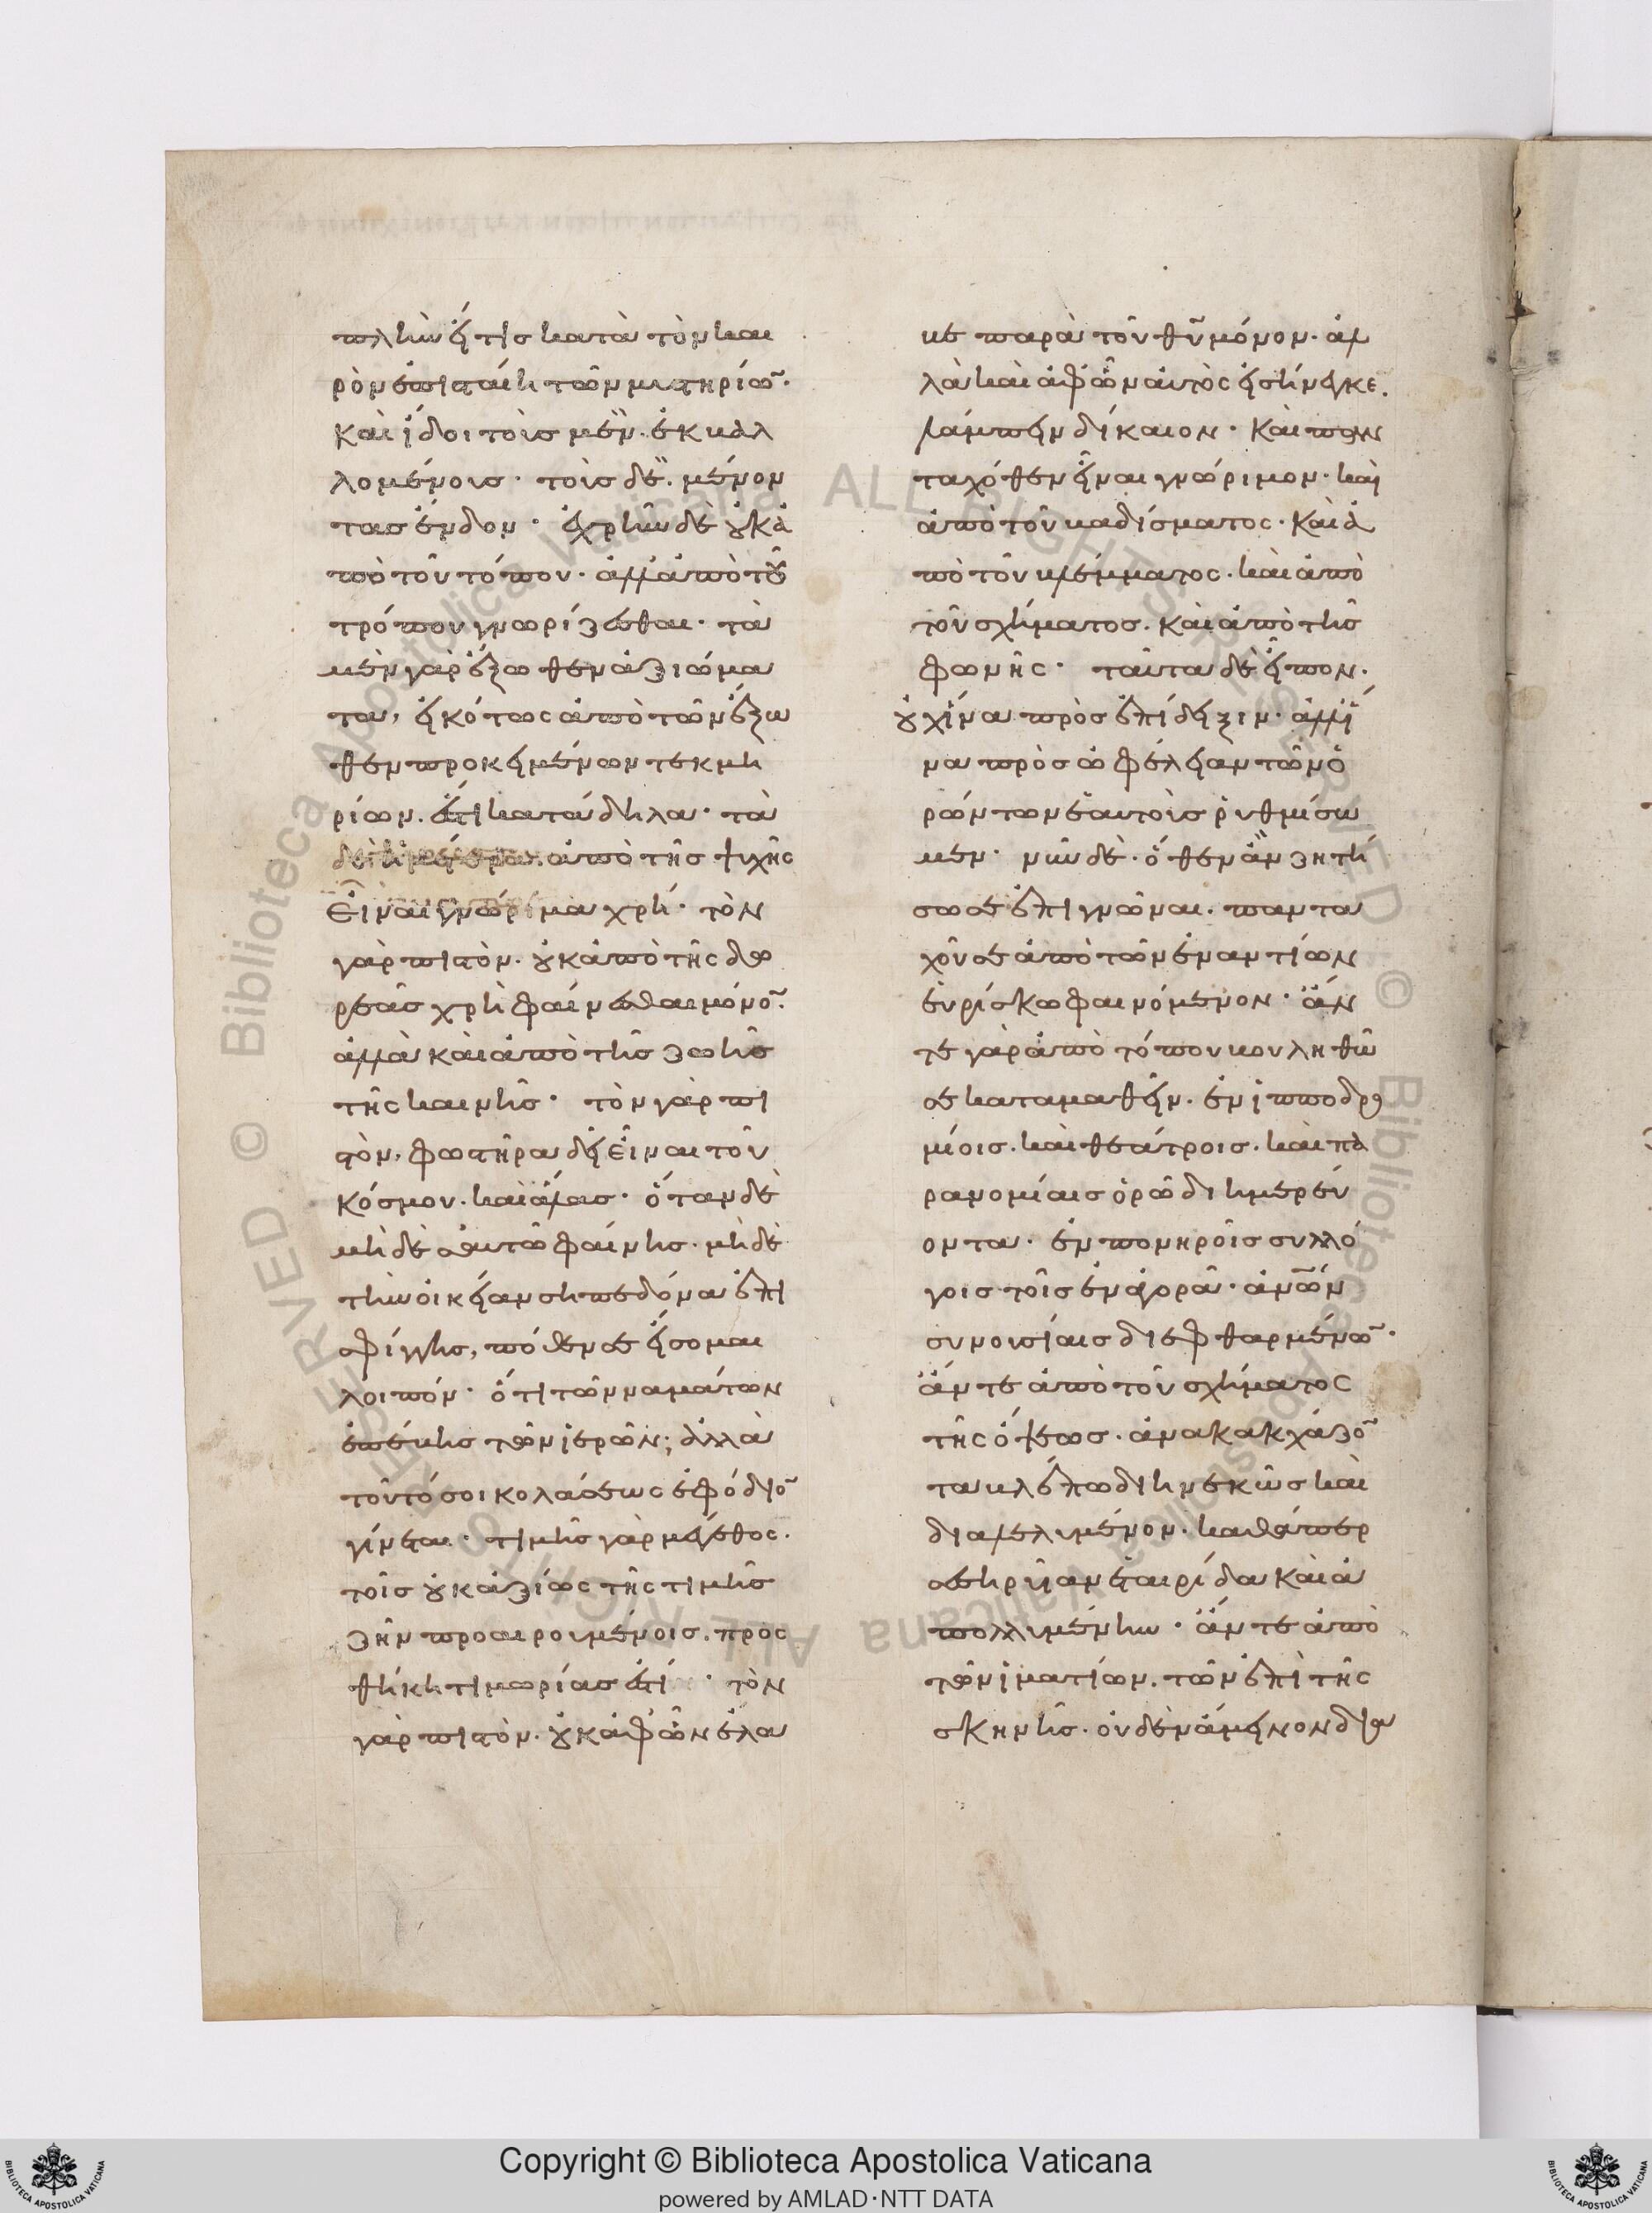 πλὴν εἴ τις κατὰ τὸν και
ρὸν ἐπισταίη τῶν μυστηρίω̅·
καὶ ἴδοι τοὺς μὲν ἐκβαλ
λομένους· τοὺς δὲ μένον
τας ἔνδον· ἐχρῆν δὲ οὐκ ἀ
πὸ τοῦ τόπου· ἀλλ' ἀπὸ τοῦ
τρόπου γνωρίζεσθαι· τὰ
μὲν γὰρ ἔξωθεν ἀξιώμα
τα, εἰκότως ἀπὸ τῶν ἔξω
θεν προκειμένων τεκμη
ρίων ἐστὶ κατάδηλα· τὰ
δὲ ἡμέτερα ἀπὸ τῆς ψυχῆς
εἶναι γνώριμα χρή· τὸν
γὰρ πιστὸν οὐκ ἀπὸ τῆς δω
ρεᾶς χρὴ φαίνεσθαι μόνο̅·
ἀλλὰ καὶ ἀπὸ τῆς ζωῆς
τῆς καινῆς· τὸν γὰρ πι
στὸν, φωστῆρα δεῖ εἶναι τοῦ
κόσμου· καὶ ἅλας· ὅταν δὲ
μὴ δὲ σαυτῷ φαίνης· μὴ δὲ
τὴν οἰκείαν σηπεδόνα ἐπι
σφίγγης, πόθεν σε εἴσομαι
λοιπόν· ὅτι τῶν ναμάτων
ἐπέβης τῶν ἱερῶν; ἀλλὰ
τοῦτό σοι κολάσεως ἐφόδιο̅
γίνεται· τιμῆς γὰρ μέγεθος·
τοῖς οὐκ ἀξίως τῆς τιμῆς
ζῆν προαιρουμένοις· προς
θήκη τιμωρίας ἐστί· τὸν
γὰρ πιστὸν· οὐκ ἀφ' ὧν ἔλα
βε παρὰ τοῦ θυ̅ μόνον· ἀλ
λὰ καὶ ἀφ' ὧν αὐτὸς εἰσήνεγκε·
λάμπειν δίκαιον· καὶ παν
ταχόθεν εἶναι γνώριμον· καὶ
ἀπὸ τοῦ βαδίσματος· καὶ ἀ
πὸ τοῦ βλέμματος· καὶ ἀπὸ
τοῦ σχήματος· καὶ ἀπὸ τῆς
φωνῆς· ταῦτα δὲ εἶπον·
οὐχ ἵνα πρὸς ἐπίδειξιν· ἀλλ' ἵ
να πρὸς ὠφέλειαν τῶν ὁ
ρώντων ἑαυτοὺς ῥυθμίσω
μεν· νῦν δὲ· ὅθεν ἂν ζητή
σω σε ἐπιγνῶναι· παντα
χοῦ σε ἀπὸ τῶν ἐναντίων
εὑρίσκω φαινόμενον· ἄν
τε γὰρ ἀπὸ τόπου βουληθῶ
σε καταμαθεῖν· ἐν ἱπποδρο
μίοις· καὶ θεάτροις· καὶ πα
ρανομίαις ὁρῶ διημερεύ
οντα· ἐν πονηροῖς συλλό
γοις τοῖς ἐν ἀγορᾷ· ἀνῶν
συνουσίαις διεφθαρμένω̅·
ἄν τε ἀπὸ τοῦ σχήματος
τῆς ὄψεως· ἀνακακχάζο̅
τα βλέπω διηνεκῶς καὶ
διακελυμένον· καθάπερ
σεσηρυῖαν ἑταιρίδα καὶ ἀ
πολλυμένην· ἄν τε ἀπὸ
τῶν ἱματίων· τῶν ἐπὶ τῆς
σκηνῆς· οὐδὲν ἄμεινον δια
Copyright © Biblioteca Apostolica Vaticana
powered by AMLAD·NTT DATA